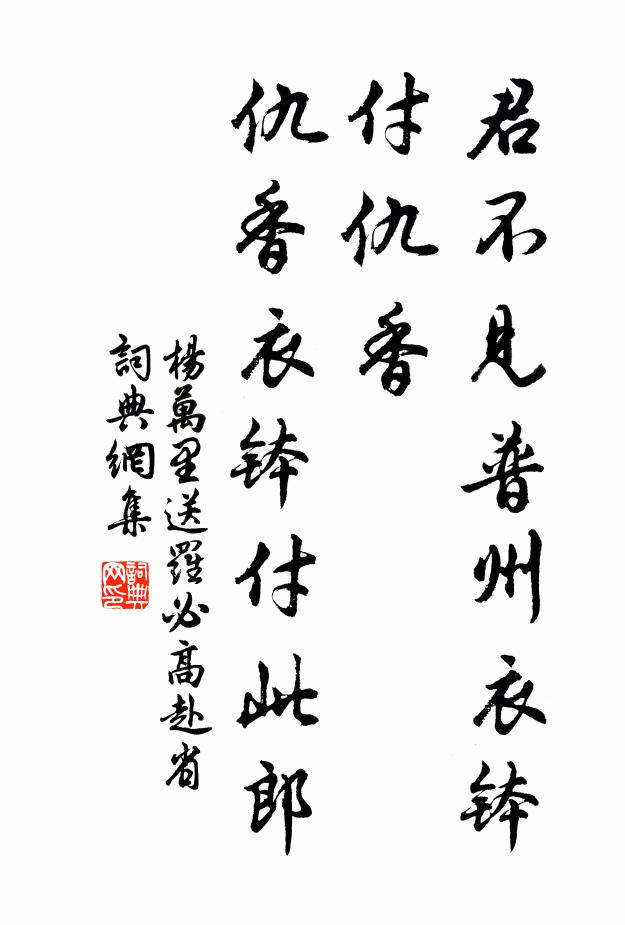 君不見普州衣鉢
付仇香
仇香衣鉢付此郎
楊萬里送羅必高赴省
詞典網集
詞典网印